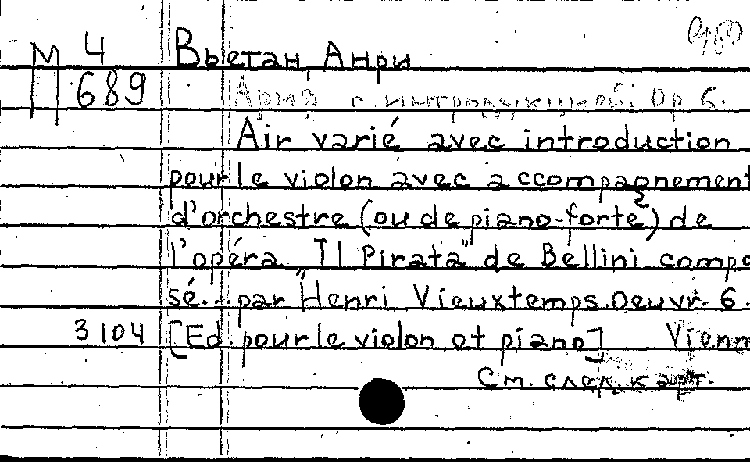 М 4 Вьетан, Анри
П 689 Ария с интродукцией Op 6.
Air varié avec introduction
pour le violon avec accompagnement
d'orchestre (ou de piano-forte) de
l'opéra "Il Pirata" de Bellini compo
sé... par Henri Vieuxtemps. Oeuvr. 6.
3104 [Ed. pour le violon et piano] Vienn
См. след. карт.